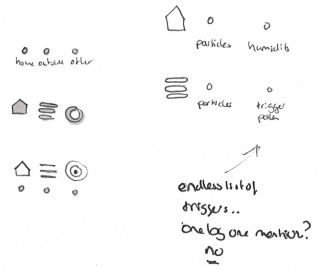 home outside other
particles humidity
particles trigger
pollen
endless list of
triggers..
one log one mention?
no